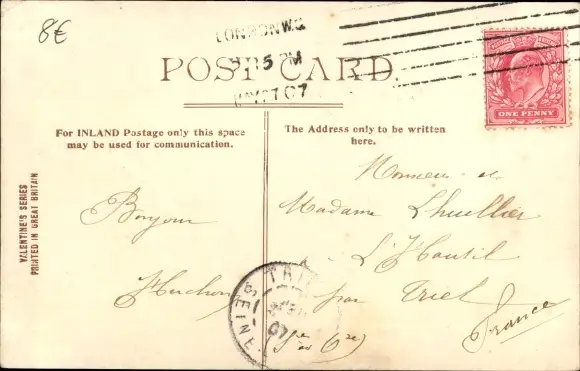 8€
LONDON W.C.
5 PM
MY 27 07
POST CARD.
ONE PENNY
For INLAND Postage only this space
may be used for communication.
The Address only to be written
here.
VALENTINE'S SERIES
PRINTED IN GREAT BRITAIN
Monsieur et
Madame Lhuillier
L'Hautil
par Triel
(Sne et Oise)
France
Bonjour
TRIEL
SEINE
07